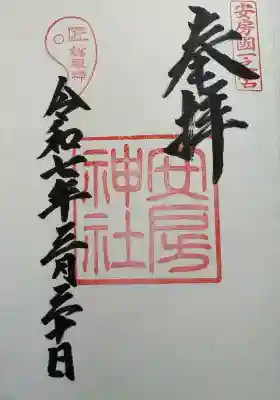 安房國一之宮
奉拝
安房神社
匠 総祖神
令和七年三月三十日